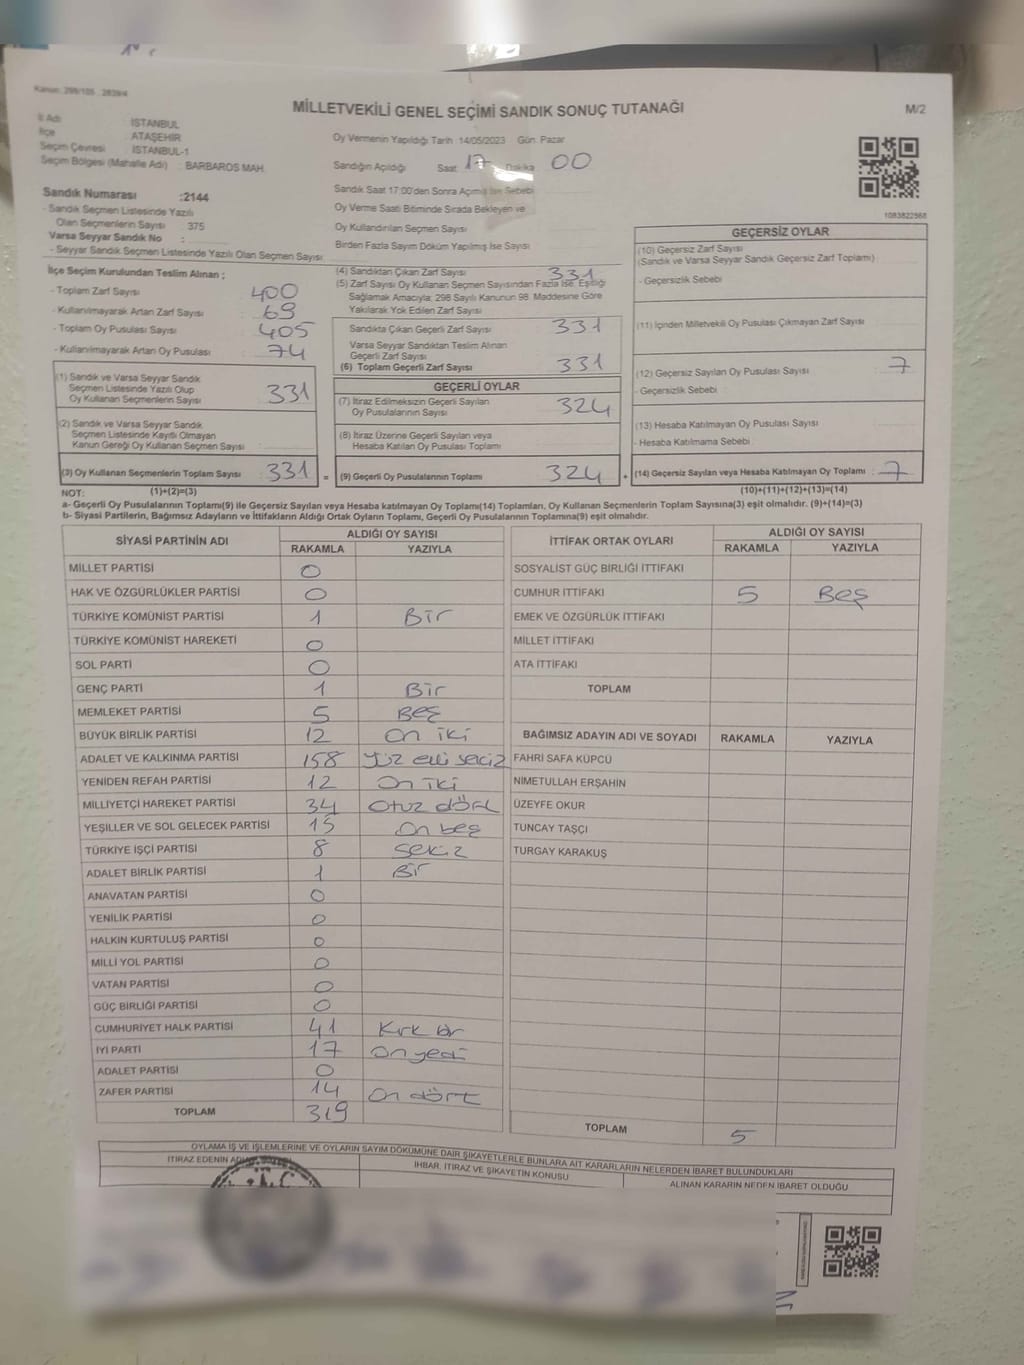 Kanun: 298/105 , 2839/4
MİLLETVEKİLİ GENEL SEÇİMİ SANDIK SONUÇ TUTANAĞI
M/2
İl Adı İSTANBUL
İlçe ATAŞEHİR
Seçim Çevresi : İSTANBUL-1
Seçim Bölgesi (Mahalle Adı) : BARBAROS MAH.
Sandık Numarası :2144
- Sandık Seçmen Listesinde Yazılı
Olan Seçmenlerin Sayısı 375
Varsa Seyyar Sandık No :
- Seyyar Sandık Seçmen Listesinde Yazılı Olan Seçmen Sayısı:
Oy Vermenin Yapıldığı Tarih :14/05/2023 Gün: Pazar
Sandığın Açıldığı Saat: 17 Dakika 00
Sandık Saat 17:00'den Sonra Açımış İse Sebebi
Oy Verme Saati Bitiminde Sırada Bekleyen ve
Oy Kullandırılan Seçmen Sayısı
Birden Fazla Sayım Döküm Yapılmış İse Sayısı
1083822568
İlçe Seçim Kurulundan Teslim Alınan ;
- Toplam Zarf Sayısı 400
- Kullanılmayarak Artan Zarf Sayısı 69
- Toplam Oy Pusulası Sayısı 405
- Kullanılmayarak Artan Oy Pusulası 74
(1) Sandık ve Varsa Seyyar Sandık
Seçmen Listesinde Yazılı Olup
Oy Kullanan Seçmenlerin Sayısı 331
(2) Sandık ve Varsa Seyyar Sandık
Seçmen Listesinde Kayıtlı Olmayan
Kanun Gereği Oy Kullanan Seçmen Sayısı
(3) Oy Kullanan Seçmenlerin Toplam Sayısı 331 =
(4) Sandıktan Çıkan Zarf Sayısı 331
(5) Zarf Sayısı Oy Kullanan Seçmen Sayısından Fazla İse, Eşitliği
Sağlamak Amacıyla; 298 Sayılı Kanunun 98. Maddesine Göre
Yakılarak Yok Edilen Zarf Sayısı
Sandıkta Çıkan Geçerli Zarf Sayısı 331
Varsa Seyyar Sandıktan Teslim Alınan
Geçerli Zarf Sayısı
(6) Toplam Geçerli Zarf Sayısı 331
GEÇERLİ OYLAR
(7) İtiraz Edilmeksizin Geçerli Sayılan
Oy Pusulalarının Sayısı 324
(8) İtiraz Üzerine Geçerli Sayılan veya
Hesaba Katılan Oy Pusulası Toplamı
(9) Geçerli Oy Pusulalarının Toplamı 324 +
GEÇERSİZ OYLAR
(10) Geçersiz Zarf Sayısı
(Sandık ve Varsa Seyyar Sandık Geçersiz Zarf Toplamı)
- Geçersizlik Sebebi
(11) İçinden Milletvekili Oy Pusulası Çıkmayan Zarf Sayısı
(12) Geçersiz Sayılan Oy Pusulası Sayısı 7
- Geçersizlik Sebebi
(13) Hesaba Katılmayan Oy Pusulası Sayısı
- Hesaba Katılmama Sebebi
(14) Geçersiz Sayılan veya Hesaba Katılmayan Oy Toplamı : 7
NOT: (1)+(2)=(3) (10)+(11)+(12)+(13)=(14)
a- Geçerli Oy Pusulalarının Toplamı(9) ile Geçersiz Sayılan veya Hesaba katılmayan Oy Toplamı(14) Toplamları, Oy Kullanan Seçmenlerin Toplam Sayısına(3) eşit olmalıdır. (9)+(14)=(3)
b- Siyasi Partilerin, Bağımsız Adayların ve İttifakların Aldığı Ortak Oyların Toplamı, Geçerli Oy Pusulalarının Toplamına(9) eşit olmalıdır.
SİYASİ PARTİNİN ADI ALDIĞI OY SAYISI
RAKAMLA YAZIYLA
MİLLET PARTİSİ 0
HAK VE ÖZGÜRLÜKLER PARTİSİ 0
TÜRKİYE KOMÜNİST PARTİSİ 1 Bir
TÜRKİYE KOMÜNİST HAREKETİ 0
SOL PARTİ 0
GENÇ PARTİ 1 Bir
MEMLEKET PARTİSİ 5 Beş
BÜYÜK BİRLİK PARTİSİ 12 On iki
ADALET VE KALKINMA PARTİSİ 158 Yüz elli sekiz
YENİDEN REFAH PARTİSİ 12 On iki
MİLLİYETÇİ HAREKET PARTİSİ 34 Otuz dört
YEŞİLLER VE SOL GELECEK PARTİSİ 15 On beş
TÜRKİYE İŞÇİ PARTİSİ 8 Sekiz
ADALET BİRLİK PARTİSİ 1 Bir
ANAVATAN PARTİSİ 0
YENİLİK PARTİSİ 0
HALKIN KURTULUŞ PARTİSİ 0
MİLLİ YOL PARTİSİ 0
VATAN PARTİSİ 0
GÜÇ BİRLİĞİ PARTİSİ 0
CUMHURİYET HALK PARTİSİ 41 Kırk bir
İYİ PARTİ 17 On yedi
ADALET PARTİSİ 0
ZAFER PARTİSİ 14 On dört
TOPLAM 319
İTTİFAK ORTAK OYLARI ALDIĞI OY SAYISI
RAKAMLA YAZIYLA
SOSYALİST GÜÇ BİRLİĞİ İTTİFAKI
CUMHUR İTTİFAKI 5 Beş
EMEK VE ÖZGÜRLÜK İTTİFAKI
MİLLET İTTİFAKI
ATA İTTİFAKI
TOPLAM
BAĞIMSIZ ADAYIN ADI VE SOYADI RAKAMLA YAZIYLA
FAHRİ SAFA KÜPCÜ
NİMETULLAH ERŞAHİN
ÜZEYFE OKUR
TUNCAY TAŞÇI
TURGAY KARAKUŞ
TOPLAM 5
OYLAMA İŞ VE İŞLEMLERİNE VE OYLARIN SAYIM DÖKÜMÜNE DAİR ŞİKAYETLERLE BUNLARA AİT KARARLARIN NELERDEN İBARET BULUNDUKLARI
İTİRAZ EDENİN
İHBAR, İTİRAZ VE ŞİKAYETİN KONUSU
ALINAN KARARIN NEDEN İBARET OLDUĞU